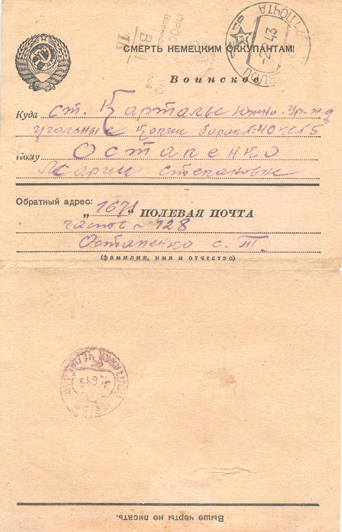 СМЕРТЬ НЕМЕЦКИМ ОККУПАНТАМ!
Воинское
Куда ст. Карталы Южно-Ур. ж д
угольные копии барак-40 кв 5
Кому Остапенко
Марии Степановне
Обратный адрес: 1671
„ “ ПОЛЕВАЯ ПОЧТА
часть № 728
Остапенко С. Т.
(фамилия, имя и отчество)
Выше черты не писать.